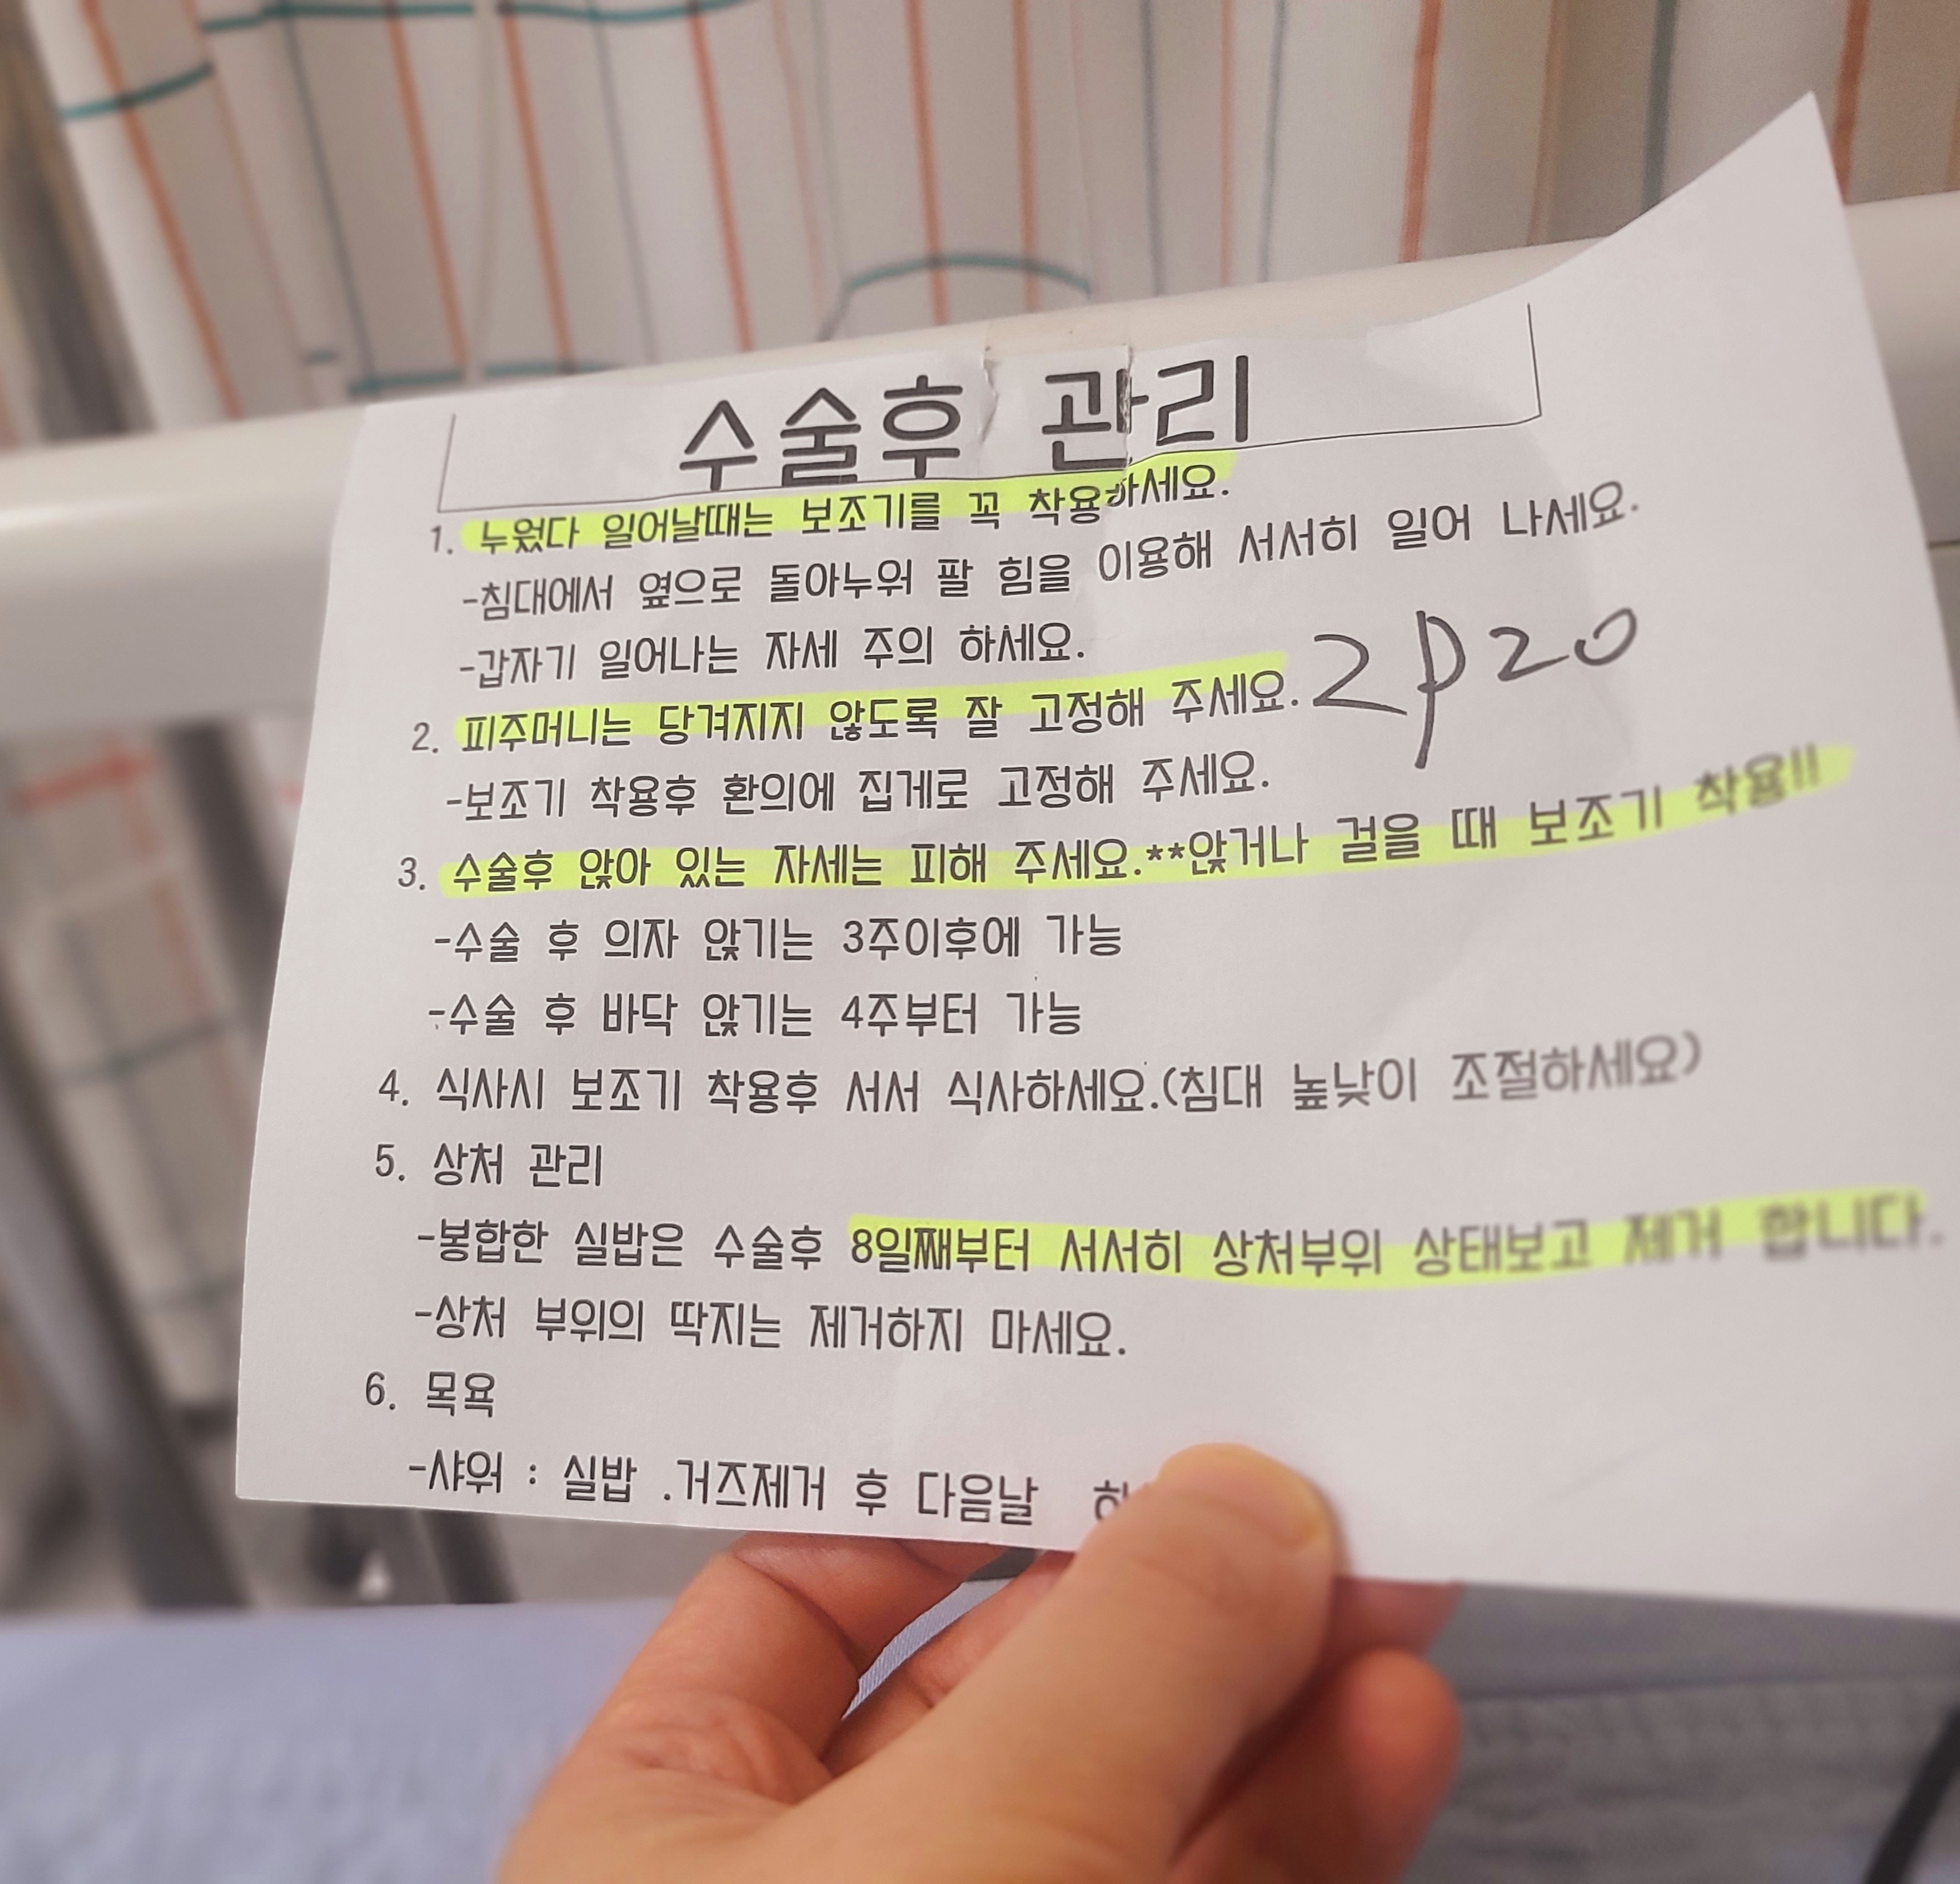 수술후 관리
1. 누웠다 일어날때는 보조기를 꼭 착용하세요.
-침대에서 옆으로 돌아누워 팔 힘을 이용해 서서히 일어 나세요.
-갑자기 일어나는 자세 주의 하세요.
2. 피주머니는 당겨지지 않도록 잘 고정해 주세요.
2p20
-보조기 착용후 환의에 집게로 고정해 주세요.
3. 수술후 앉아 있는 자세는 피해 주세요.**앉거나 걸을 때 보조기 착용!!
-수술 후 의자 앉기는 3주이후에 가능
-수술 후 바닥 앉기는 4주부터 가능
4. 식사시 보조기 착용후 서서 식사하세요.(침대 높낮이 조절하세요)
5. 상처 관리
-봉합한 실밥은 수술후 8일째부터 서서히 상처부위 상태보고 제거 합니다.
-상처 부위의 딱지는 제거하지 마세요.
6. 목욕
-샤워 : 실밥 .거즈제거 후 다음날